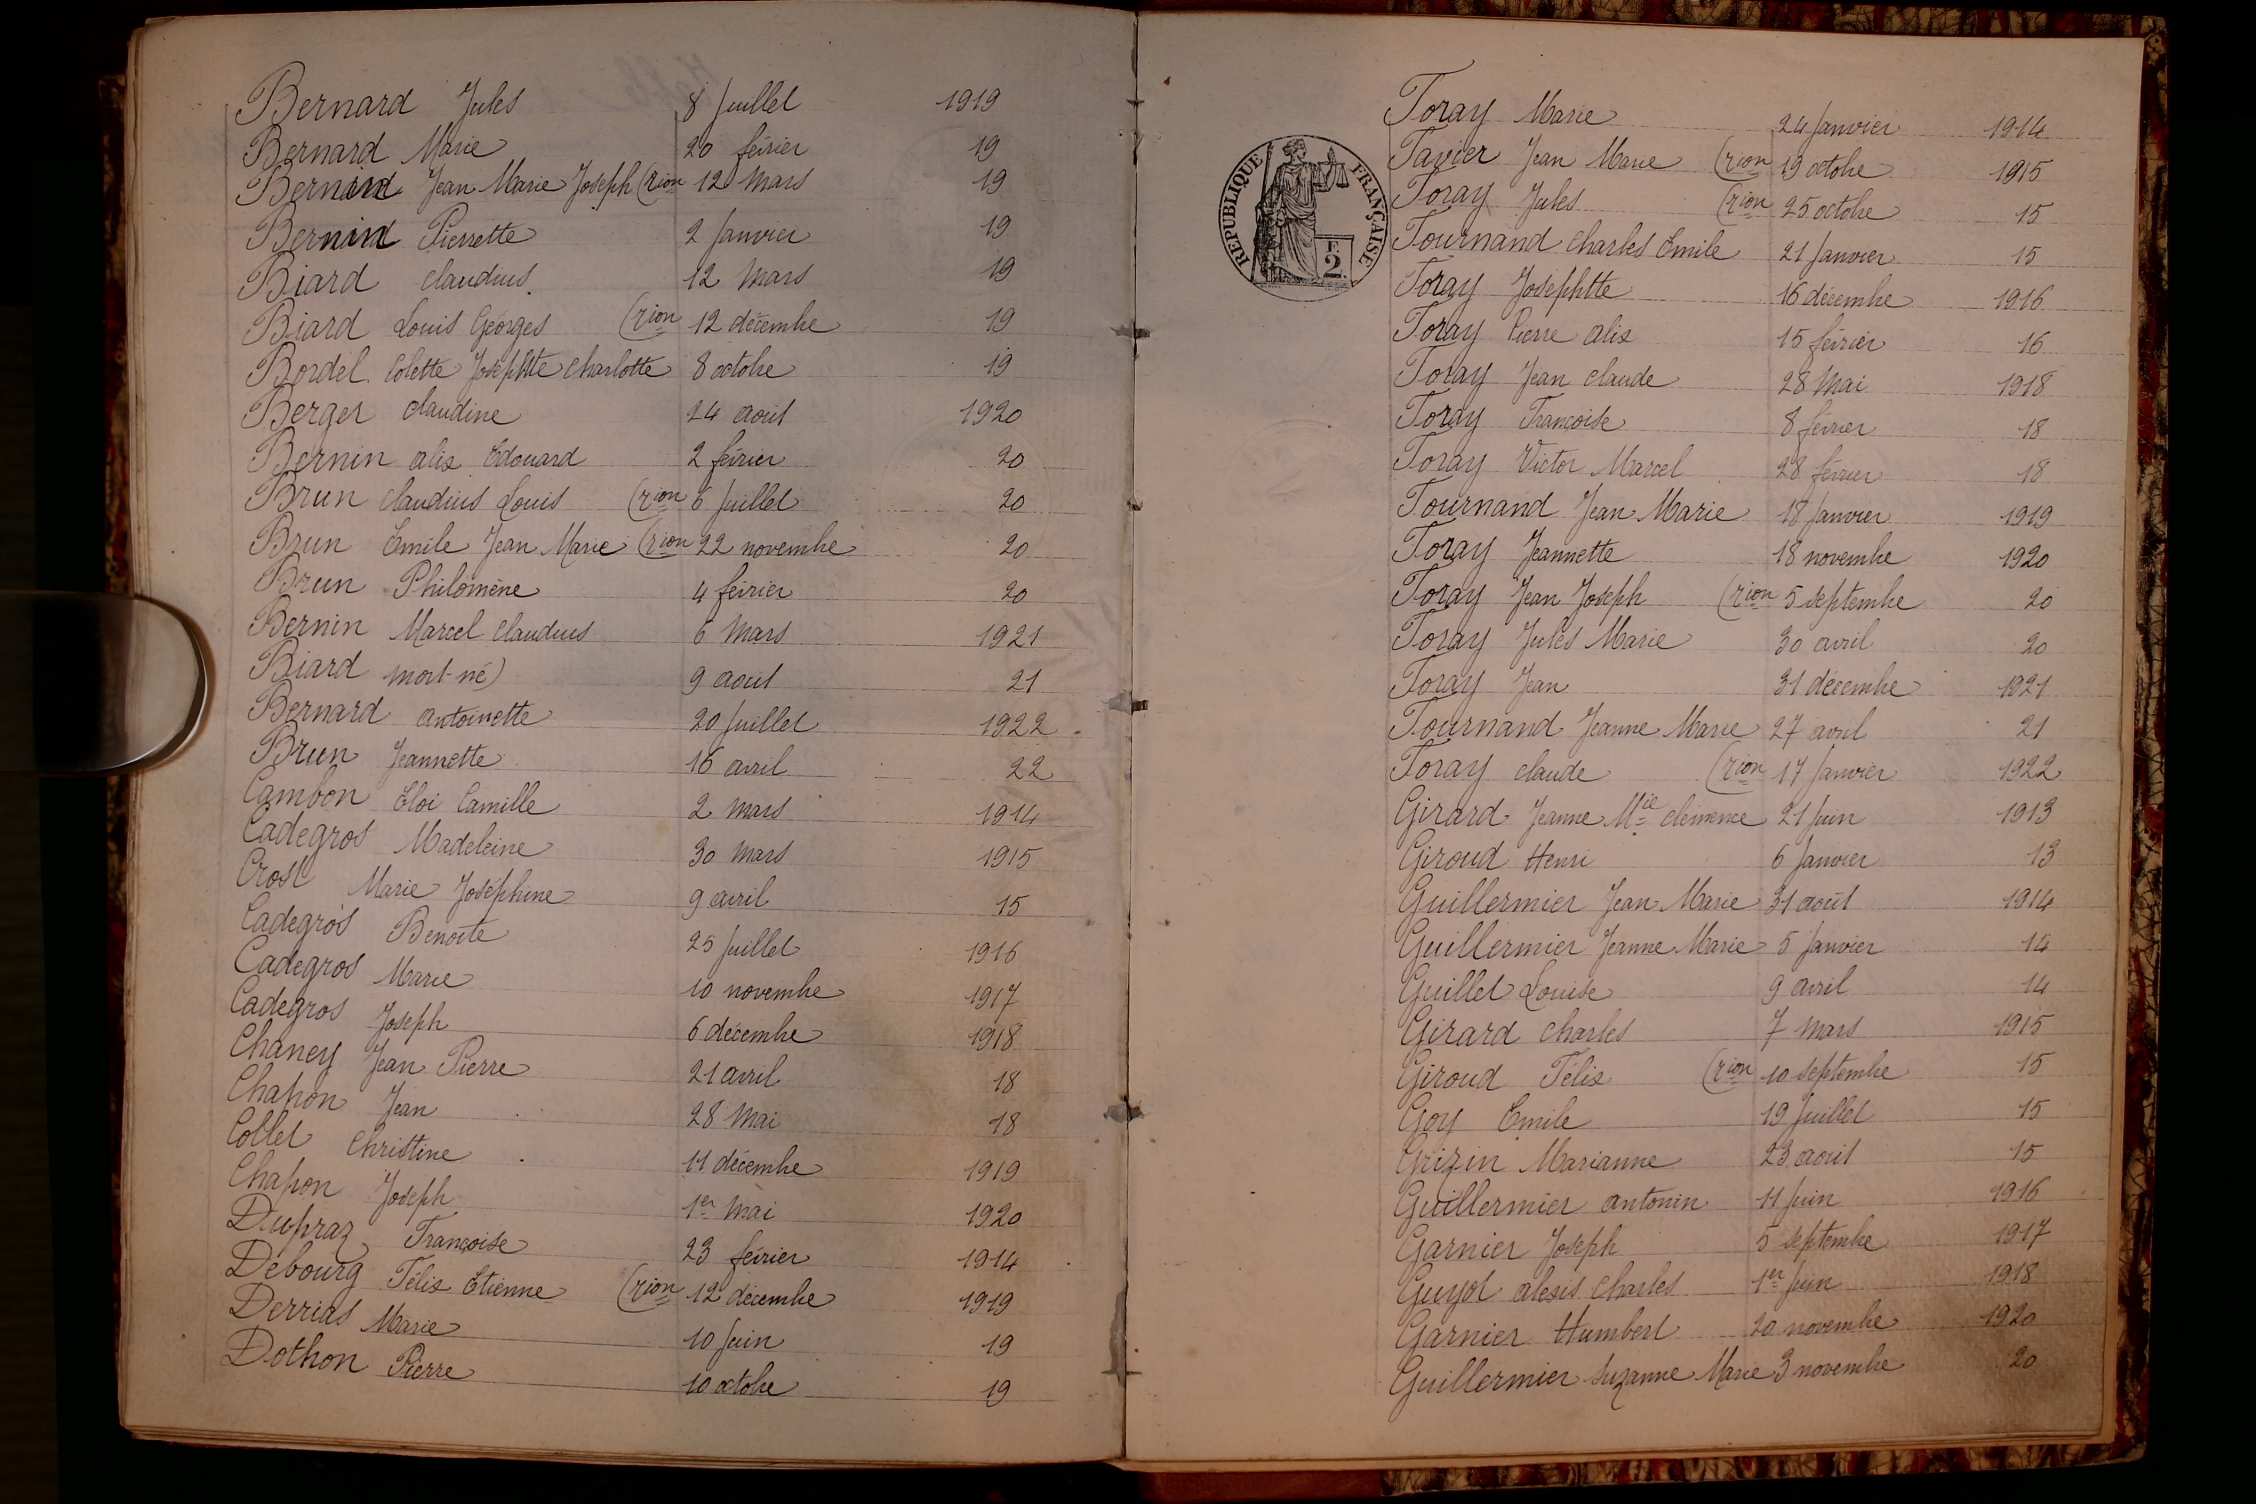 Bernard Jules 8 Juillet 1919
Bernard Marie 20 février 19
Bernin Jean Marie Joseph (rion 12 Mars 19
Bernin Pierrette 2 Janvier 19
Biard Claudius 12 Mars 19
Biard Louis Georges (rion 12 décembre 19
Bordel Colette Josephtte Charlotte 8 octobre 19
Berger Claudine 24 août 1920
Bernin Alix Edouard 2 février 20
Brun Claudius Louis (rion 6 Juillet 20
Brun Emile Jean Marie (rion 22 novembre 20
Brun Philomène 4 février 20
Bernin Marcel Claudius 6 Mars 1921
Biard mort-né) 9 août 21
Bernard Antoinette 20 Juillet 1922
Brun Jeannette 16 avril 22
Cambon Eloi Camille 2 Mars 1914
Cadegros Madeleine 30 Mars 1915
Crost Marie Joséphine 9 avril 15
Cadegros Benoîte 25 Juillet 1916
Cadegros Marie 10 novembre 1917
Cadegros Joseph 6 décembre 1918
Chaney Jean Pierre 21 avril 18
Chapon Jean 28 Mai 18
Collet Christine 11 décembre 1919
Chapon Joseph 1er Mai 1920
Dupraz Françoise 23 février 1914
Debourg Félix Etienne (rion 12 décembre 1919
Derrias Marie 10 Juin 19
Dothon Pierre 10 octobre 19
REPUBLIQUE FRANÇAISE
2F.
Foray Marie 24 Janvier 1914
Favier Jean Marie (rion 19 octobre 1915
Foray Jules (rion 25 octobre 15
Fournand Charles Emile 21 Janvier 15
Foray Josephtte 16 décembre 1916
Foray Pierre Alix 15 février 16
Foray Jean Claude 28 Mai 1918
Foray Françoise 8 février 18
Foray Victor Marcel 28 février 18
Fournand Jean Marie 18 Janvier 1919
Foray Jeannette 18 novembre 1920
Foray Jean Joseph (rion 5 septembre 20
Foray Jules Marie 30 avril 20
Foray Jean 31 décembre 1921
Fournand Jeanne Marie 27 avril 21
Foray Claude (rion 17 Janvier 1922
Girard Jeanne Mie Clémence 21 Juin 1913
Giroud Henri 6 Janvier 13
Guillermier Jean Marie 31 août 1914
Guillermier Jeanne Marie 5 Janvier 14
Guillet Louise 9 avril 14
Girard Charles 7 Mars 1915
Giroud Félix (rion 10 septembre 15
Goy Emile 19 Juillet 15
Grizin Marianne 23 août 15
Guillermier Antonin 11 Juin 1916
Garnier Joseph 5 septembre 1917
Guyot Alexis Charles 1er Juin 1918
Garnier Humbert 20 novembre 1920
Guillermier Suzanne Marie 3 novembre 20